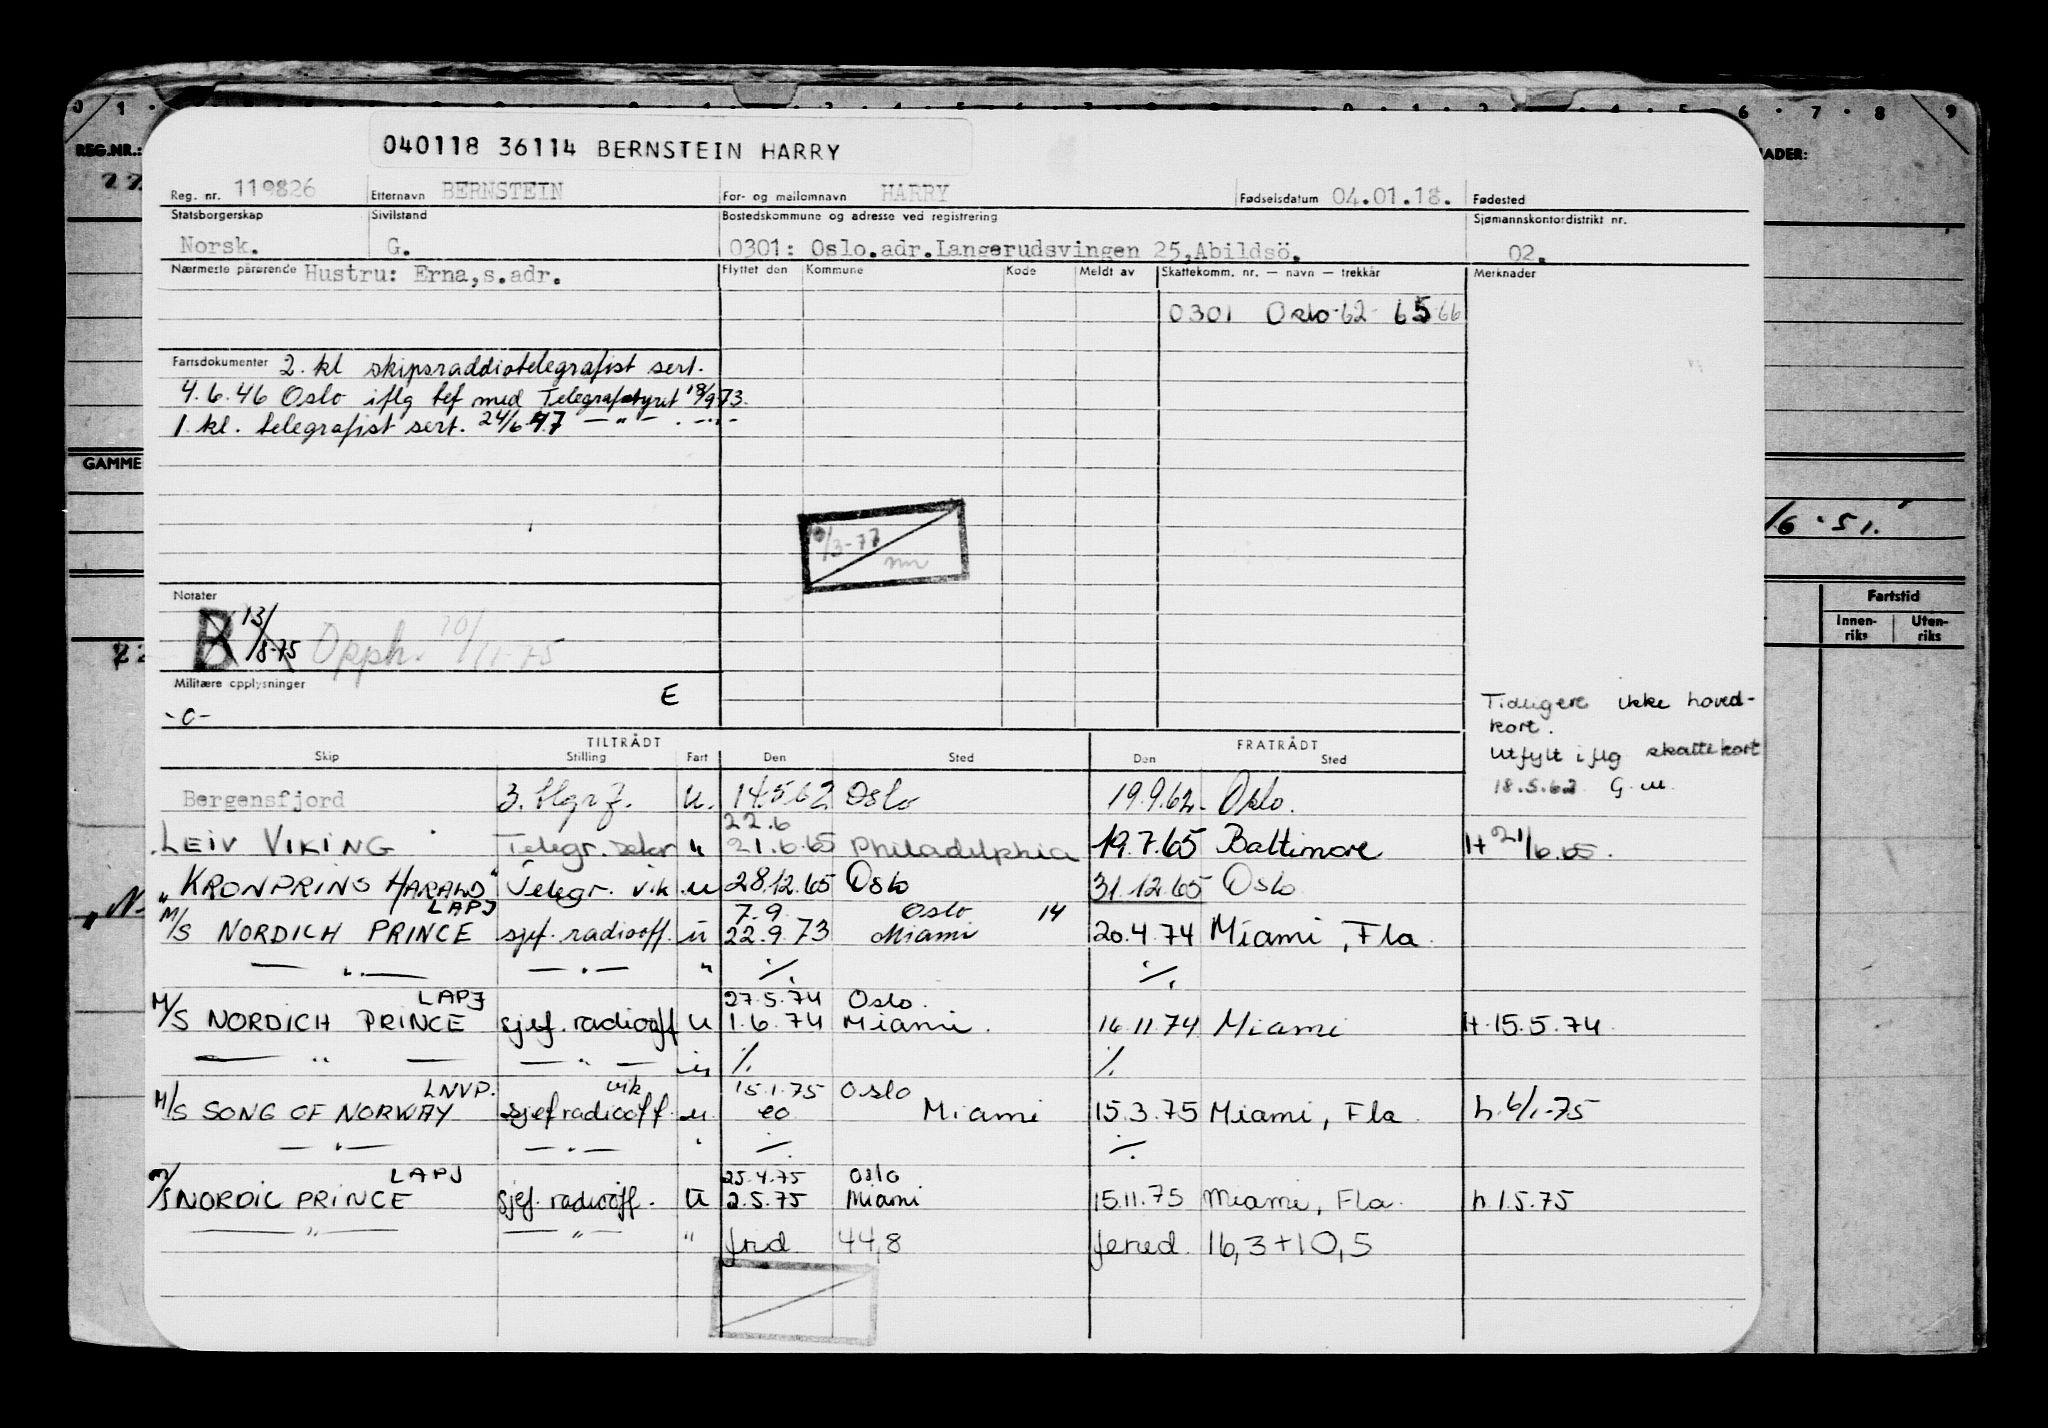 0 1 · 6 · 7 · 8 9
REG.NR.: NADER:
040118 36114 BERNSTEIN HARRY
Reg. nr. 119826 Etternavn BERNSTEIN For- og mellomnavn HARRY Fødselsdatum 04.01.18. Fødested
Statsborgerskap Sivilstand Bostedskommune og adresse ved registrering Sjømannskontordistrikt nr.
Norsk. G. 0301: Oslo.adr.Langerudsvingen 25,Abildsö. 02.
Nærmeste pårørende Hustru: Erna,s.adr. Flyttet den Kommune Kode Meldt av Skattekomm. nr. — navn — trekkår Merknader
0301 Oslo-62- 65 66
Fartsdokumenter 2. kl skipsraddiotelegrafist sert.
4.6.46 Oslo iflg tlf med Telegrafstyret 18/9-73.
1. kl. telegrafist sert. 24/6 47 — " — . — " —
GAMME
/6 · 51.
10/3-77
Notater
B 13/8-75 Opph. 10/11-75
Fartstid
Innen-riks Uten-riks
Militære opplysninger E
-0-
Tidligere ikke hoved-
kort.
Utfylt iflg skattekort
18.5.62 G.M.
TILTRÅDT FRATRÅDT
Skip Stilling Fart Den Sted Den Sted
Bergensfjord 3. tlgrf. U. 14.5.62 Oslo 19.9.62- Oslo.
22.6
LEIV VIKING Telegr. " 21.6.65 Philadelphia 19.7.65 Baltimore H 21/6.65.
"KRONPRINS HARALD" Telegr. vik u 28.12.65 Oslo 31.12.65 Oslo
LAPJ 7.9. Oslo 14
M/S NORDICH PRINCE sjef. radiooff. u 22.9.73 Miami 20.4.74 Miami, Fla.
— " — — " — " ./. ./.
LAPJ 27.5.74 Oslo.
M/S NORDICH PRINCE sjef. radiooff U 1.6.74 Miami. 16.11.74 Miami H. 15.5.74
— " — — " — " ./. ./.
LNVP. vik 15.1.75 Oslo
M/S SONG OF NORWAY sjefradiooff. u. eo Miami 15.3.75 Miami, Fla h. 6/1-75
— " — — " — " ./. ./.
LAPJ 25.4.75 Oslo
M/S NORDIC PRINCE sjef. radiooff. U 2.5.75 Miami 15.11.75 Miami, Fla. h 1.5.75
— " — — " — " frid 44,8 feried. 16,3+10,5